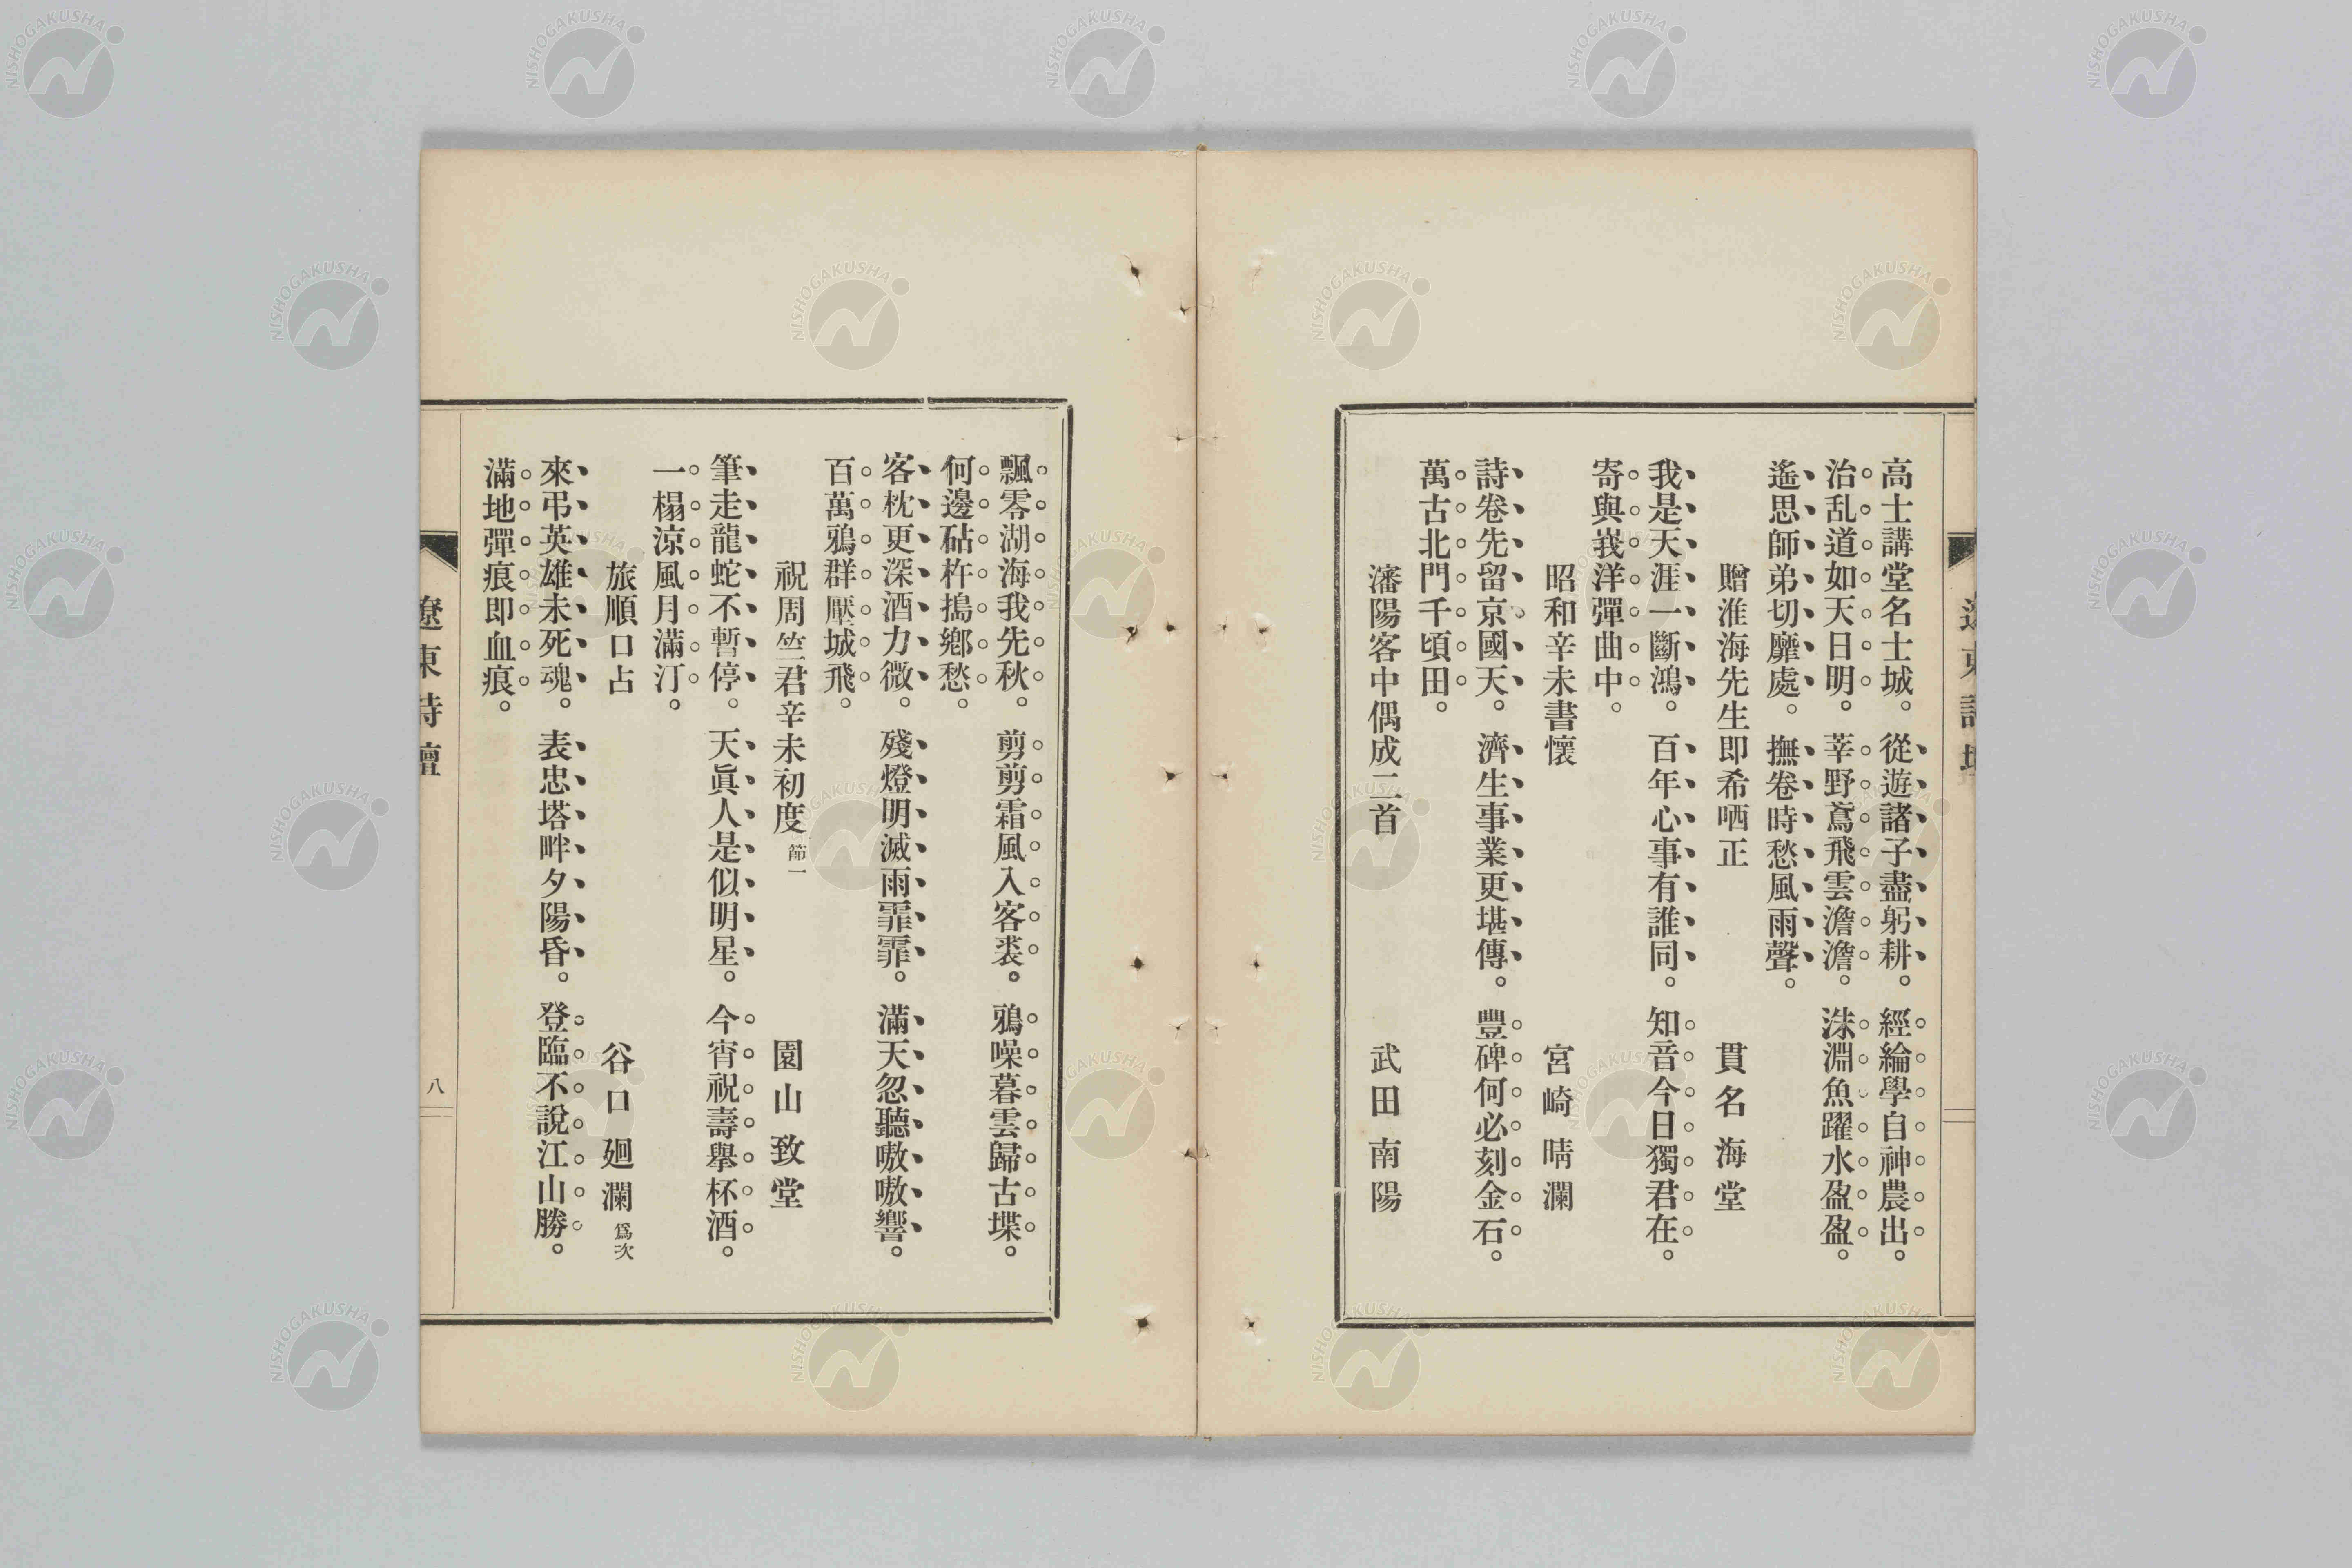 高士講堂名士城。從遊諸子盡躬耕。經綸學自神農出。
治乱道如天日明。莘野鳶飛雲澹澹。洙淵魚躍水盈盈。
遙思師弟切靡處。撫卷時愁風雨聲。
贈淮海先生即希哂正 貫名海堂
我是天涯一斷鴻。百年心事有誰同。知音今日獨君在。
寄與峩洋彈曲中。
昭和辛未書懷 宮崎晴瀾
詩卷先留京國天。濟生事業更堪傳。豐碑何必刻金石。
萬古北門千頃田。
瀋陽客中偶成二首 武田南陽
飄零湖海我先秋。剪剪霜風入客裘。鴉噪暮雲歸古堞。
何邊砧杵搗鄉愁。
客枕更深酒力微。殘燈明滅雨霏霏。滿天忽聽嗷嗷響。
百萬鴉群壓城飛。
祝周竺君辛未初度 節一 園山致堂
筆走龍蛇不暫停。天眞人是似明星。今宵祝壽擧杯酒。
一榻涼風月滿汀。
旅順口占 谷口廻瀾 爲次
來弔英雄未死魂。表忠塔畔夕陽昏。登臨不說江山勝。
滿地彈痕即血痕。
遼東詩壇
八
NISHOGAKUSHA